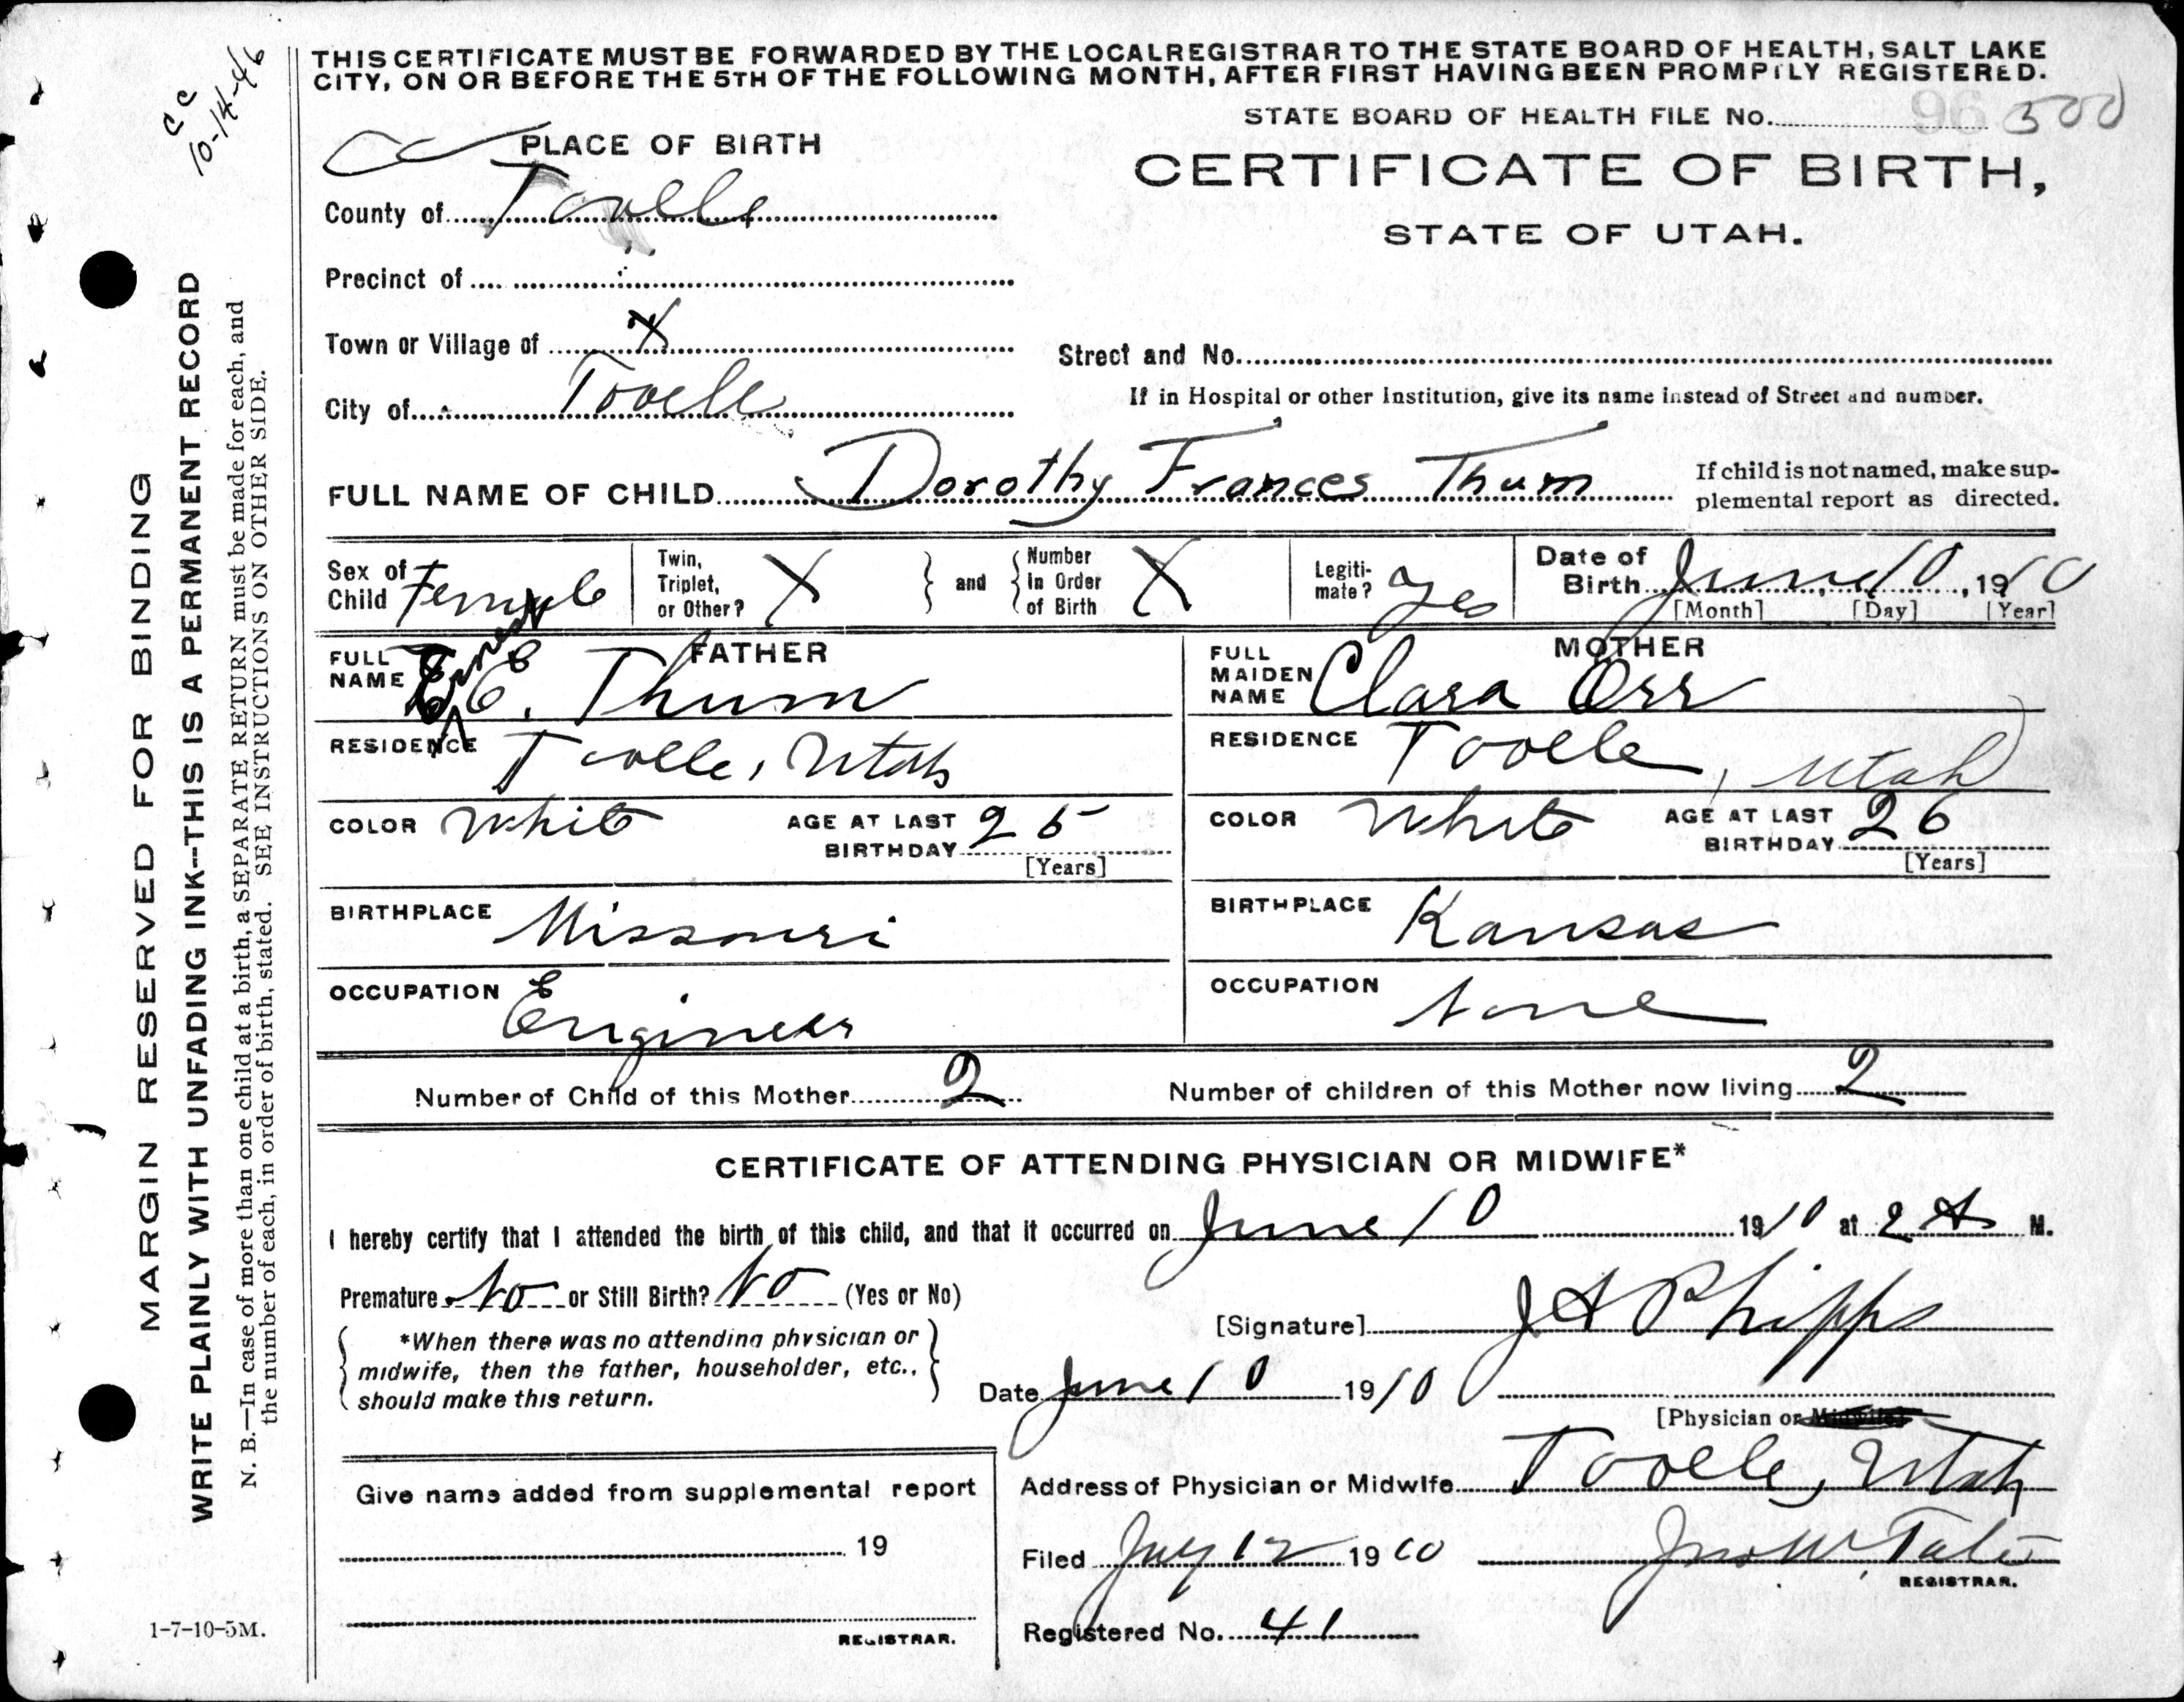 THIS CERTIFICATE MUST BE FORWARDED BY THE LOCAL REGISTRAR TO THE STATE BOARD OF HEALTH, SALT LAKE
CITY, ON OR BEFORE THE 5TH OF THE FOLLOWING MONTH, AFTER FIRST HAVING BEEN PROMPTLY REGISTERED.
cc
10-14-46
STATE BOARD OF HEALTH FILE No. 96 500
PLACE OF BIRTH
CERTIFICATE OF BIRTH,
STATE OF UTAH.
County of Tooele
Precinct of
Town or Village of X
Street and No.
City of Tooele
If in Hospital or other Institution, give its name instead of Street and number.
FULL NAME OF CHILD Dorothy Frances Thum
If child is not named, make sup-
plemental report as directed.
Sex of Child Female
Twin, Triplet, or Other? X
and
Number in Order of Birth X
Legiti-mate? Yes
Date of Birth June 10, 1910
[Month] [Day] [Year]
FATHER
FULL NAME Ernest E. Thum
RESIDENCE Tooele, Utah
COLOR White
AGE AT LAST BIRTHDAY 25
[Years]
BIRTHPLACE Missouri
OCCUPATION Engineer
MOTHER
FULL MAIDEN NAME Clara Orr
RESIDENCE Tooele, Utah
COLOR White
AGE AT LAST BIRTHDAY 26
[Years]
BIRTHPLACE Kansas
OCCUPATION none
Number of Child of this Mother 2
Number of children of this Mother now living 2
CERTIFICATE OF ATTENDING PHYSICIAN OR MIDWIFE*
I hereby certify that I attended the birth of this child, and that it occurred on June 10 1910 at 2 A M.
Premature No or Still Birth? No (Yes or No)
*When there was no attending physician or
midwife, then the father, householder, etc.,
should make this return.
[Signature] J A Phipps
Date June 10 1910
[Physician or Midwife]
Address of Physician or Midwife Tooele, Utah
Give name added from supplemental report
19
REGISTRAR.
Filed July 12 1910
Jno W. Tate
REGISTRAR.
Registered No. 41
1-7-10-5M.
MARGIN RESERVED FOR BINDING
WRITE PLAINLY WITH UNFADING INK--THIS IS A PERMANENT RECORD
N. B.—In case of more than one child at a birth, a SEPARATE RETURN must be made for each, and
the number of each, in order of birth, stated. SEE INSTRUCTIONS ON OTHER SIDE.